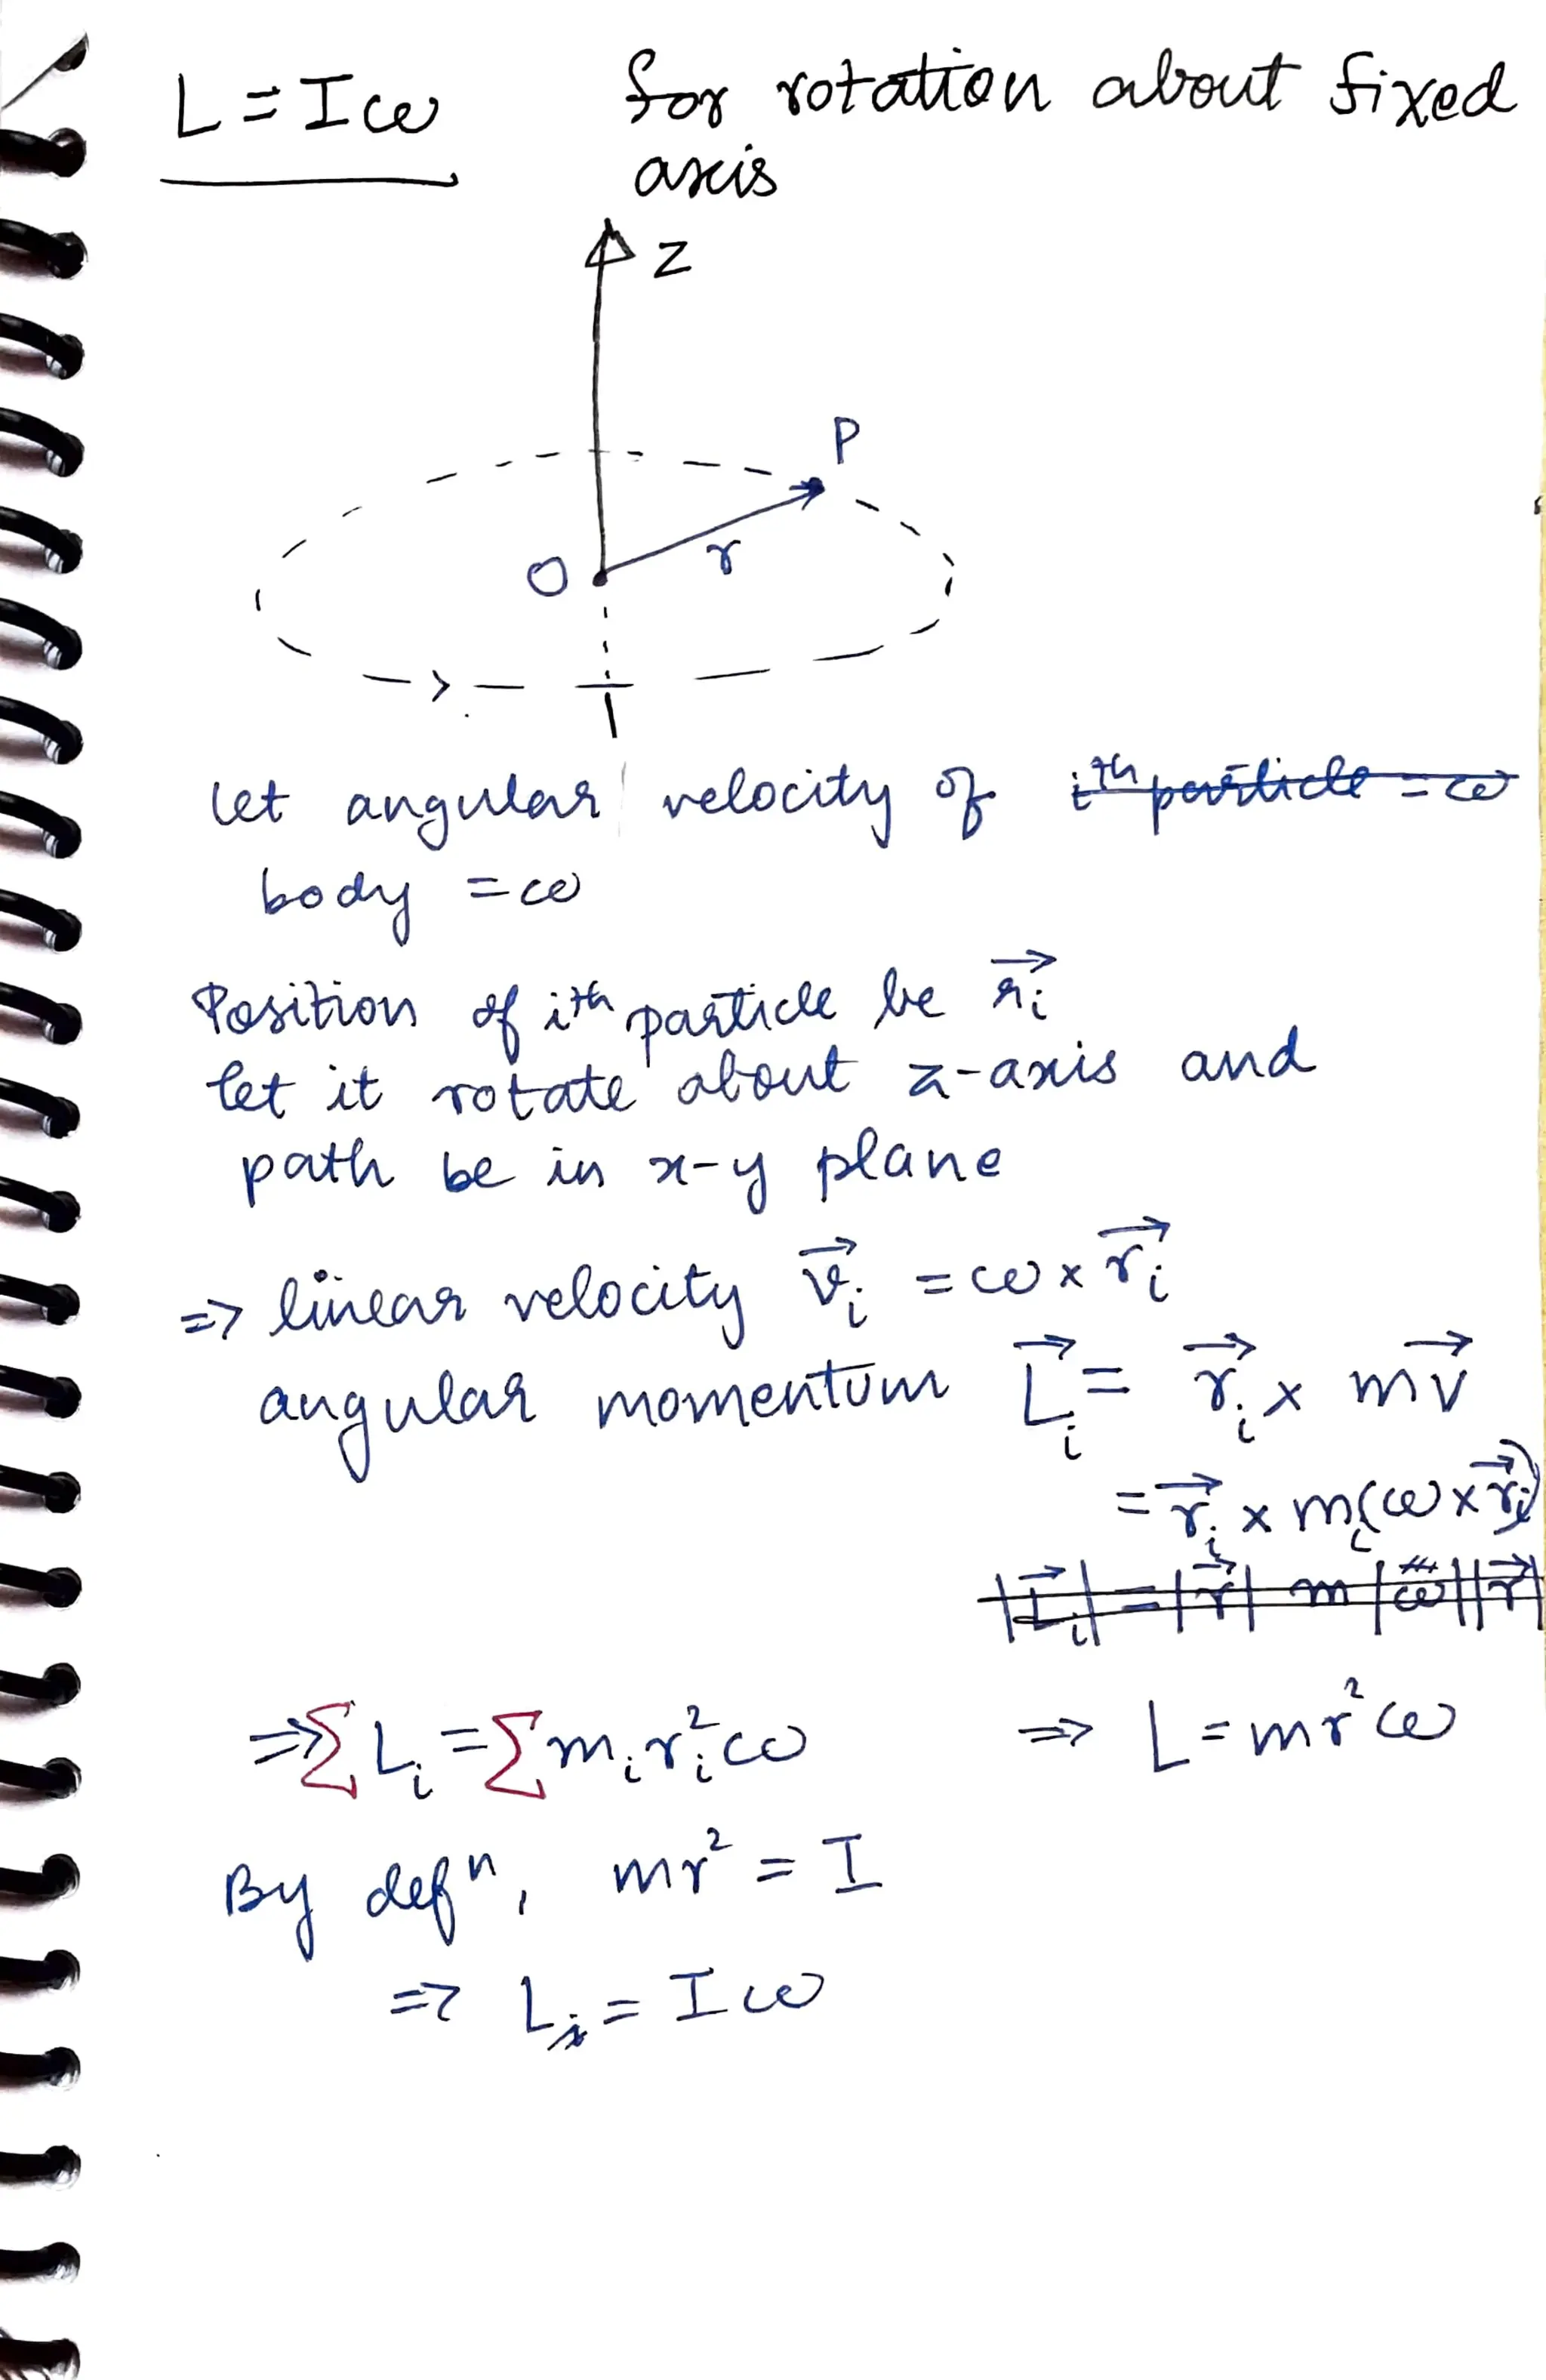 L = Iω for rotation about fixed
axis
Z
P
O
r
let angular velocity of i^th particle = ω
body = ω
Position of i^th particle be r⃗_i
let it rotate about z-axis and
path be in x-y plane
=> linear velocity v⃗_i = ω × r⃗_i
angular momentum L⃗_i = r⃗_i × mv⃗
= r⃗_i × m_i(ω × r⃗_i)
|L⃗_i| = |r⃗| m |ω||r⃗|
=> ΣL_i = Σm_i r_i² ω => L = mr²ω
By def^n, mr² = I
=> L = Iω